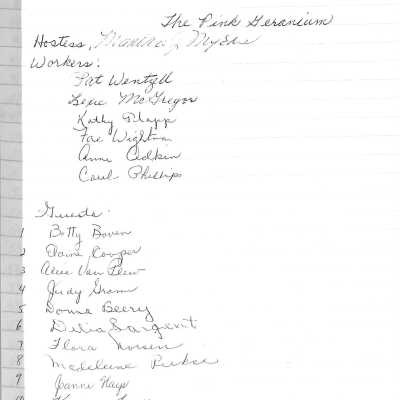 The Pink Geranium
Hostess,
Workers:
Pat Wentzell
Lexie McGregor
Kathy Plapp
Fae Wightman
Anne Cidkin
Carol Phillips
Guests
1 Betty Boven
2 Elaine Cooper
3 Alice Van
4 Judy Gram
5 Donna Beery
6 Delia Sargent
7 Flora
8 Madeleine
9 Jeanne Hays
10